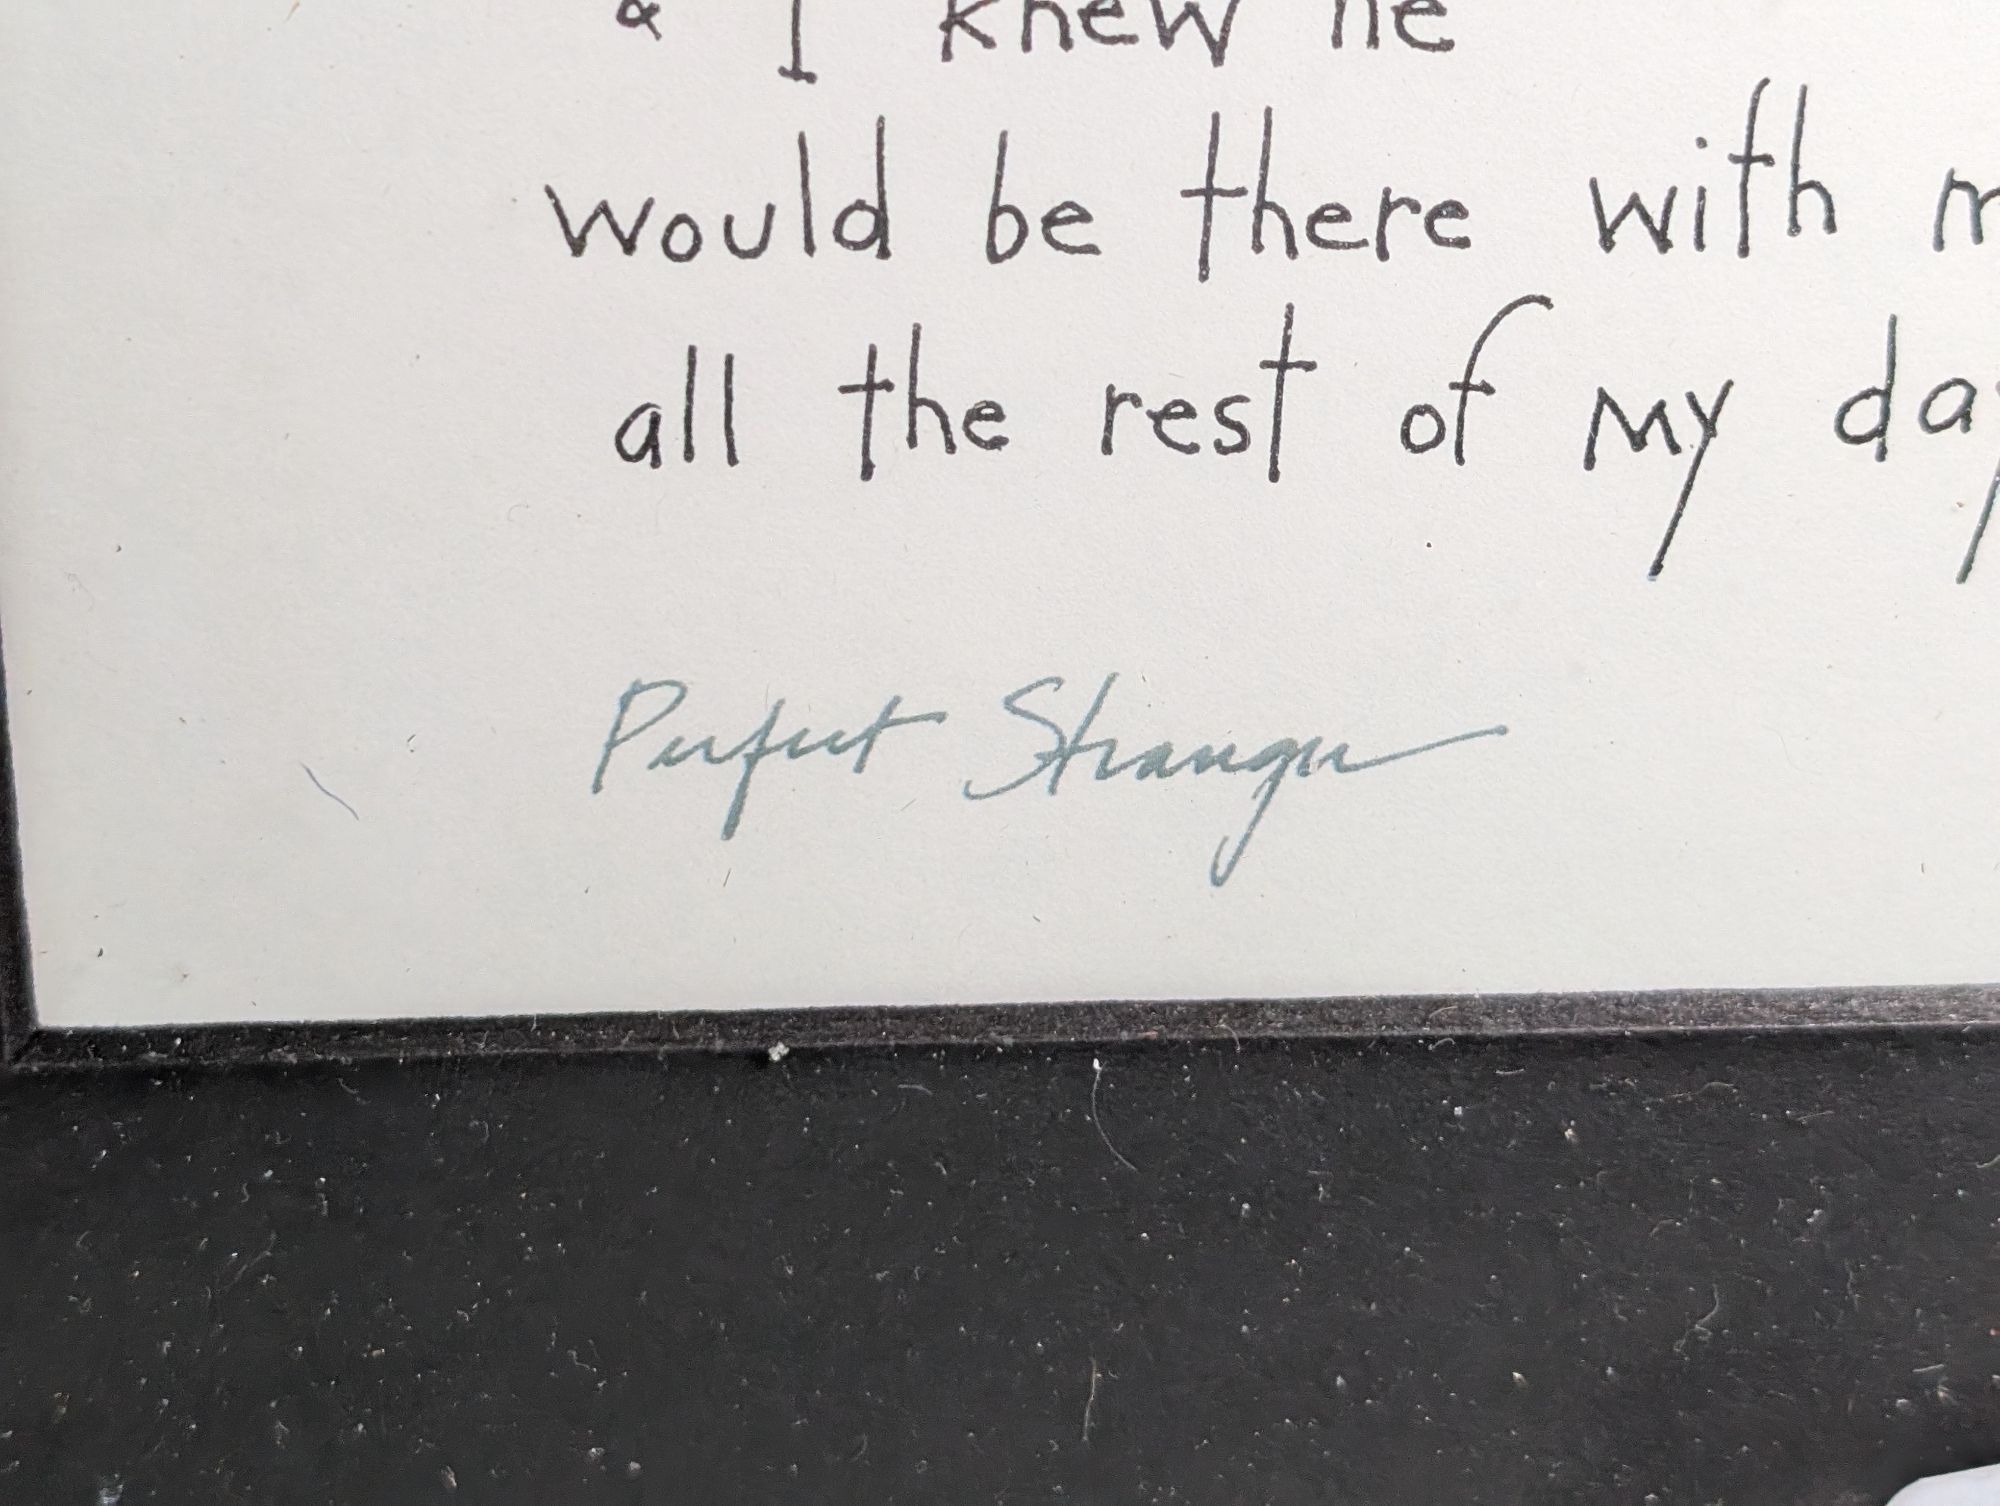 & I knew he
would be there with m
all the rest of my day
Perfect Stranger